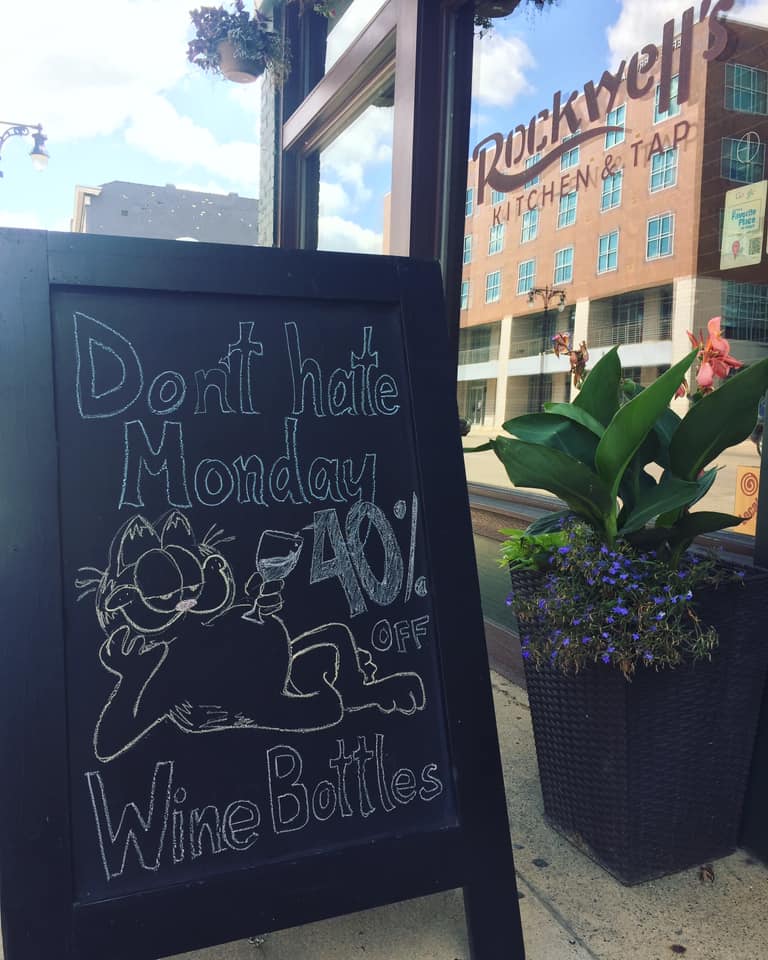 Rockwell's
KITCHEN & TAP
Don't hate
Monday
40%
OFF
Wine Bottles
Favorite
Place